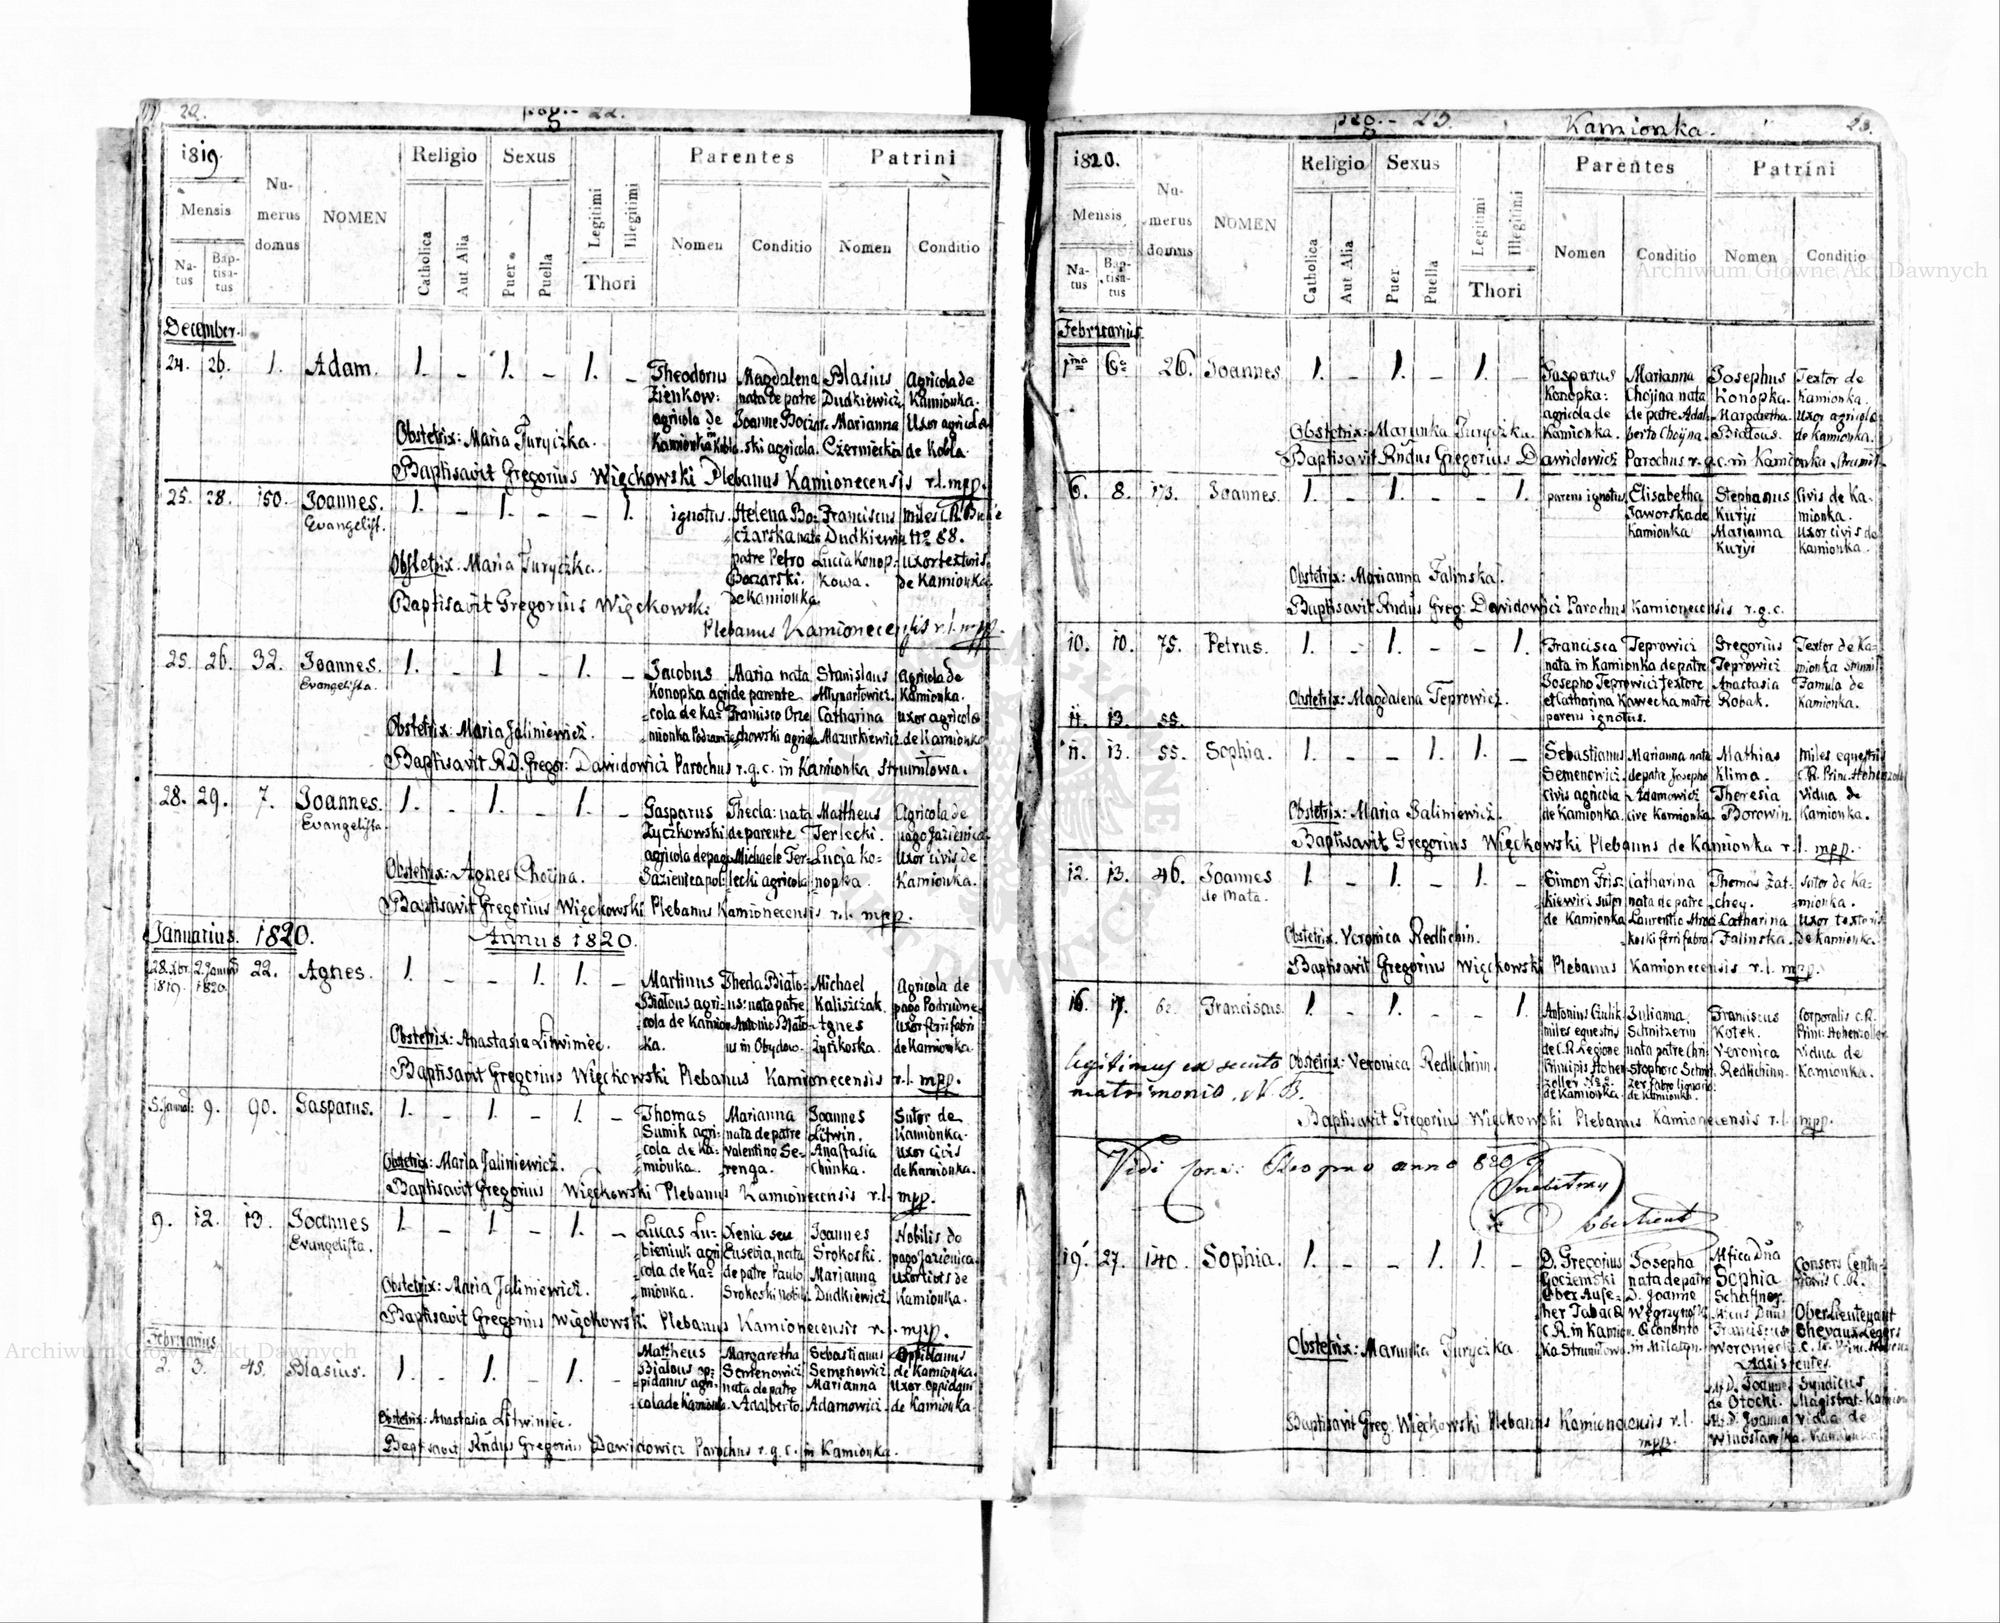 22.
pag. - 22.
1819.
Religio Sexus Parentes Patrini
Mensis Numerus domus NOMEN Catholica Aut Alia Puer Puella Legitimi Illegitimi Thori Nomen Conditio Nomen Conditio
Natus Baptisatus
December.
24. 26. 1. Adam. 1. - 1. - 1. - Theodorus Magdalena Blasius Agricola de
Zienkow: nata de patre Dudkiewicz Kamionka.
agricola de Joanne Boczar- Marianna Uxor agricola
Obstetrix: Maria Juryczka. Kamionka ski agricola. Czerniecka de Kobla.
Baptisavit Gregorius Więckowski Plebanus Kamionecensis r.l. mpp.
25. 28. 150. Joannes. 1. - 1. - - 1. ignotus. Helena Bo- Franciscus miles
Evangelist. czarska nata Dudkiewicz No 88.
Obstetrix: Maria Juryczka. patre Petro Lucia Konop- uxor textoris
Boczarski. kowa. de Kamionka
Baptisavit Gregorius Więckowski de Kamionka.
Plebanus Kamionecensis r.l. mpp.
25. 26. 32. Joannes. 1. - 1 - 1. - Jacobus Maria nata Stanislaus Agricola de
Evangelista. Konopka agri- de parente Młynarłowicz Kamionka.
cola de Ka- Francisco Orze Catharina uxor agricola
Obstetrix: Maria Jaliniewicz. mionka chowski agricola Mazurkiewicz de Kamionka
Baptisavit R.D. Gregor: Dawidowicz Parochus r.g.c. in Kamionka Strumiłowa.
28. 29. 7. Joannes. 1. - 1. - 1. - Gasparus Thecla: nata Mattheus Agricola de
Evangelista Zyczkowski de parente Terlecki. pago Jazienica
agricola de pago Michaele Ter- Lucja Ko- uxor civis de
Obstetrix: Agnes Choijna. lecki agricola nopka. Kamionka.
Baptisavit Gregorius Więckowski Plebanus Kamionecensis r.l. mpp.
Januarius. 1820. Annus 1820.
28. Xbr. 1819. 2. Januarii 1820. 22. Agnes. 1. - - 1. 1. - Martinus Thecla Biało- Michael Agricola de
Białous agri- us: nata patre Kaliszczak. pago
cola de Kamion- Antonio Biało- Agnes uxor ferri fabri
Obstetrix: Anastasia Litwiniec. ka. us in Obydow. Zytikoska. de Kamionka.
Baptisavit Gregorius Więckowski Plebanus Kamionecensis r.l. mpp.
9. 90. Gasparus. 1. - 1. - 1. - Thomas Marianna Joannes Sutor de
Sumik agri- nata de patre Litwin. Kamionka.
cola de Ka- Valentino Se- Anastasia uxor civis
Obstetrix: Maria Jaliniewicz. mionka. renga. Chinka. de Kamionka.
Baptisavit Gregorius Więckowski Plebanus Kamionecensis r.l. mpp.
9. 12. 13. Joannes 1. - 1. - 1. - Lucas Lu- Xenia seu Joannes Nobilis de
Evangelista. bieniuk agri Eusebia, nata Srokoski. pago Jazienica.
cola de Ka- de patre Paulo Marianna uxor civis de
Obstetrix: Maria Jaliniewicz. mionka. Srokoski Nobili Dudkiewicz. Kamionka.
Baptisavit Gregorius Więckowski Plebanus Kamionecensis r.l. mpp.
Februarius
2. 3. 45. Blasius. 1. - 1. - 1. - Mattheus Margaretha Sebastianus Oppidanus
Bialous op- Semenowicz Semenowicz de Kamionka.
pidanus agri- nata de patre Marianna Uxor oppidani
cola de Kamionka. Adalberto. Adamowicz. de Kamionka.
Obstetrix: Anastasia Litwiniec.
Baptisavit Rndus Gregorius Dawidowicz Parochus r.g.c. in Kamionka.
pag. - 23. Kamionka. 23.
1820.
Religio Sexus Parentes Patrini
Mensis Numerus domus NOMEN Catholica Aut Alia Puer Puella Legitimi Illegitimi Thori Nomen Conditio Nomen Conditio
Natus Baptisatus
Februarius.
1ma 6a 26. Joannes 1. - 1. - 1. - Gasparus Marianna Josephus Textor de
Konopka: Chojna nata Konopka. Kamionka.
agricola de de patre Adal- Margaretha Uxor agricola
Obstetrix: Marunka Juryczka. Kamionka. berto Chojna. Białous. de Kamionka.
Baptisavit Rndus Gregorius Dawidowicz Parochus r.g.c. in Kamionka Strumił.
6. 8. 173. Joannes. 1. - 1. - - 1. parens ignotus Elisabetha Stephanus Civis de Ka-
Jaworska de Kuryi mionka.
Kamionka Marianna Uxor civis de
Kuryi Kamionka.
Obstetrix: Marianna Falinska.
Baptisavit Rndus Greg: Dawidowicz Parochus Kamionecensis r.g.c.
10. 10. 75. Petrus. 1. - 1. - - 1. Francisca Teprowicz Gregorius Textor de Ka-
nata in Kamionka de patre Teprowicz mionka Strumił
Josepho Teprowicz textore Anastasia Famula de
Obstetrix: Magdalena Teprowicz. et Catharina Kawecka matre Robak. Kamionka.
parens ignotus.
11. 13. 55.
11. 13. 55. Sophia. 1. - - 1. 1. - Sebastianus Marianna nata Mathias miles equestris
Semenowicz de patre Josepho Klima. C.R. Princ. Hohenzoller
civis agricola Adamowicz Theresia Vidua de
Obstetrix: Maria Galiniewicz. de Kamionka. cive Kamionka. Borowin. Kamionka.
Baptisavit Gregorius Więckowski Plebanus de Kamionka r.l. mpp.
12. 13. 46. Joannes 1. - 1. - 1. - Simon Fris- Catharina Thomas Zat- Sutor de Ka-
de Mata. kiewicz sutor nata de patre chey. mionka.
de Kamionka Laurentio Catharina Uxor textoris
Obstetrix. Veronica Redlichin. koski ferri fabro Falinska. de Kamionka.
Baptisavit Gregorius Więckowski Plebanus Kamionecensis r.l. mpp.
16. 17. 62. Franciscus. 1. - 1. - - 1. Antonius Juliana Franciscus Corporalis C.R.
miles equestris Schnitzerin Kotek. Princ: Hohenzoller.
de C.R. Legione nata patre Chri- Veronica Vidua de
Principis Hohen- stophoro Schnit- Redlichinn. Kamionka.
zoller No 2. zer fabro lignario
de Kamionka. de Kamionka.
legitimus ex secuto Obstetrix: Veronica Redlichinn.
matrimonio. N.B.
Baptisavit Gregorius Więckowski Plebanus Kamionecensis r.l. mpp.
Vidi anno 820
19. 27. 140. Sophia. 1. - - 1. 1. - D. Gregorius Josepha Mfica Dna Consors Centu-
Goczemski nata de patre Sophia rionis C.R.
Ober Aufse- D. Joanne Schaffner.
her Taback Oberlieutenant
C.R. in Kamion- Oeconomo Franciscus Chevaux Legers
Obstetrix: Marunka Juryczka. ka Strumiłowa in Milatyn. Woroniecki
Adsistentes.
D. Joannes Syndicus
de Otocki. Magistrat. Kamion
D. Joanna Vidua de
Baptisavit Greg. Więckowski Plebanus Kamionecensis r.l.
mpp.
Archiwum Główne Akt Dawnych
Archiwum Główne Akt Dawnych